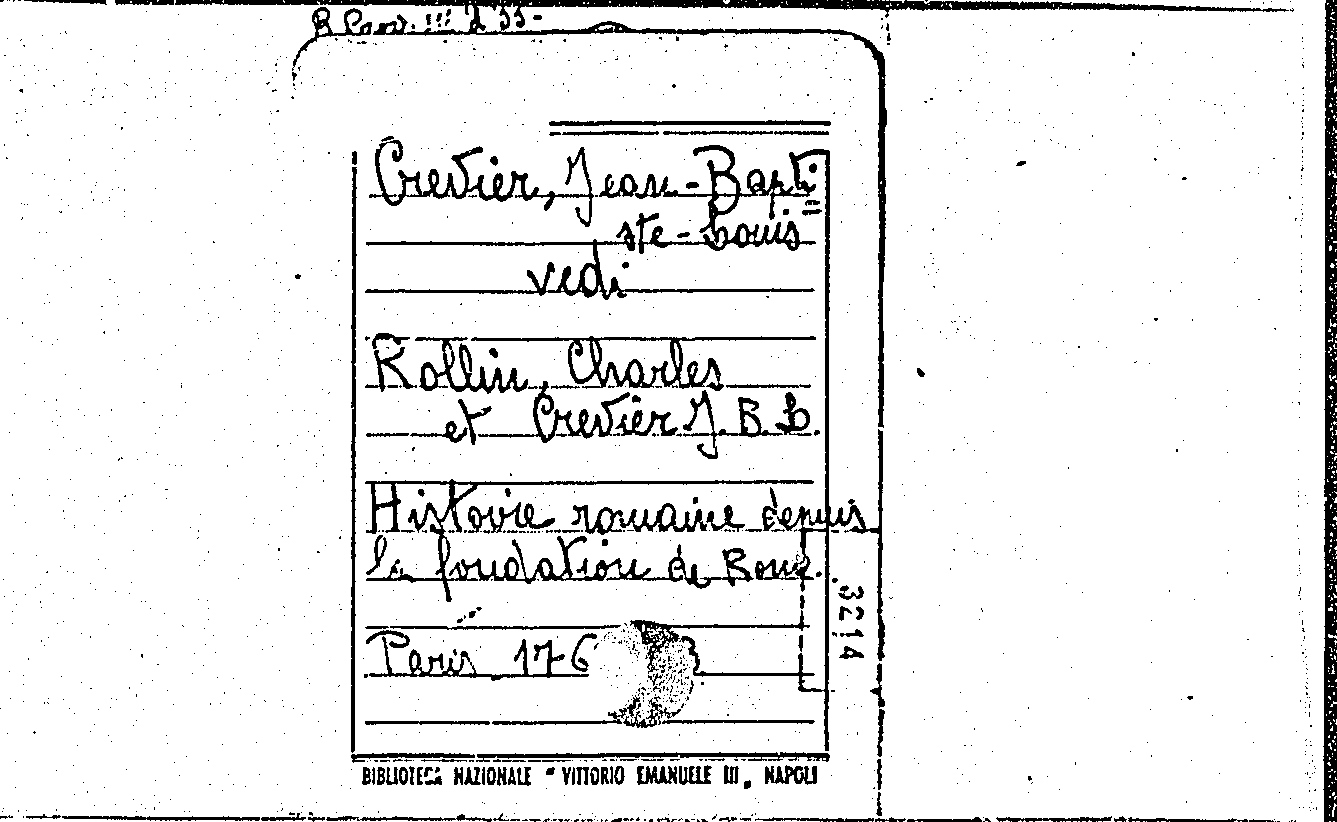 Crevier, Jean-Bapti=
ste-Louis
vedi
Rollin, Charles
et Crevier J. B. L.
Histoire romaine depuis
la fondation de Rome.
Paris 176
3214
BIBLIOTECA NAZIONALE "VITTORIO EMANUELE III„ NAPOLI